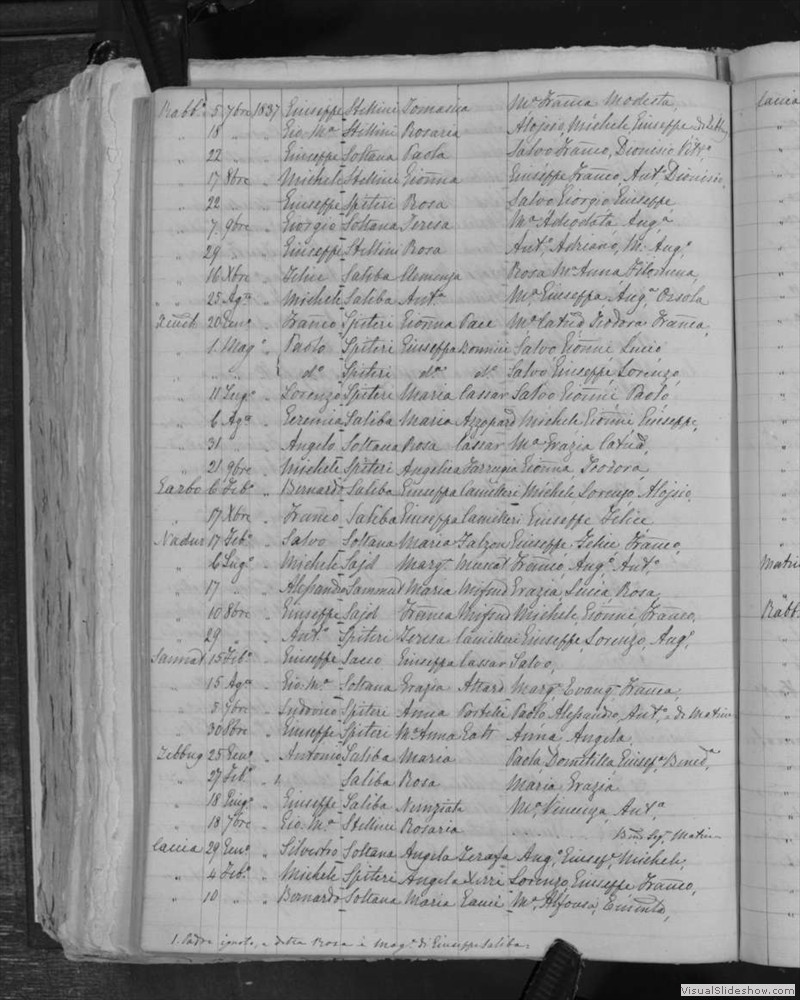 Rabb.º 5 7bre 1837 Giuseppe Stellini Tomasina Mª Franca Modesta,
" 18 " " Gio. Mª Stellini Rosaria Aloisio, Michele Giuseppe
" 22 " " Giuseppe Soltana Paola Salvo Franco, Dionisio
" 17 8bre " Michele Stellini Gionna Giuseppe Franco, Antº, Dionisio,
" 22 " " Giuseppe Spiteri Rosa Salvo Giorgio Giuseppe
" 7 9bre " Giorgio Soltana Teresa Mª Adeodata Angª
" 29 " " Giuseppe Stellini Rosa Antº, Adriano, M. Angº,
" 16 Xbre " Felice Saliba Clemenza Rosa Mª Anna Filomena,
" 25 Agº " Michele Saliba Antª Mª Giuseppa Angª Orsola
20 Genº " Franco Spiteri Gionna Pace Mª Catnª Teodora Franca,
" 1 Magº " Paolo Spiteri Giuseppa Bonnici Salvo, Gionni Lucio
" " " dº Spiteri dª dº Salvo, Giuseppe, Lorenzo,
" 11 Lugº " Lorenzo Spiteri Maria Cassar Salvo Gionni, Paolo,
" 6 Agº " Geremia Saliba Maria Azzopard Michele, Gionni, Giuseppe,
" 31 " " Angelo Soltana Rosa Cassar Mª Grazia Catnª,
" 21 9bre " Michele Spiteri Angelica Farrugia Gionna Teodora
Garbo 6 Febº " Bernardo Saliba Giuseppa Camilleri Michele Lorenzo, Aloisio,
" 17 Xbre " Franco Saliba Giuseppa Camilleri Giuseppe Felice,
Nadur 17 Febº " Salvo Soltana Maria Falzon Giuseppe Felice Franco,
" 6 Lugº " Michele Said Margª Franco, Angº, Antº,
" 17 " " Alessandro Sammut Maria Mifsud Grazia, Lucia Rosa,
" 10 8bre " Giuseppe Said Franca Mifsud Michele, Gionni Franco,
" 29 " " Antº Spiteri Teresa Camilleri Giuseppe, Lorenzo, Angº,
Sannat 15 Febº " Giuseppe Giuseppa Cassar Salvo,
" 15 Agº " Gio. Mª Soltana Grazia Attard Margª Evangª Franca,
" 5 7bre " Ludovico Spiteri Anna Portelli Paolo, Alessandro, Antº, di Matrice
" 30 8bre " Giuseppe Spiteri Mª Anna Gatt Anna Angela,
Zebbug 25 Genº " Antonio Saliba Maria Paola, Domitilla, Giusepª, Bened.ª
" 27 Febº " 1, Saliba Rosa Maria Grazia
" 18 " Giuseppe Saliba Nunziata Mª Vincenza, Antª,
" 18 7bre " Gio. Mª Stellini Rosaria
29 Genº " Silvestro Soltana Angela Angº, Giusepº, Michele,
" 4 Febº " Michele Spiteri Angela Xirri Lorenzo, Giuseppe Franco,
" 10 " " Bernardo Soltana Maria Mª Alfonsa,
1. Padre ignoto, e detta Rosa è Magº di Giuseppe Saliba.
Matri
Rabb.
VisualSlideshow.com